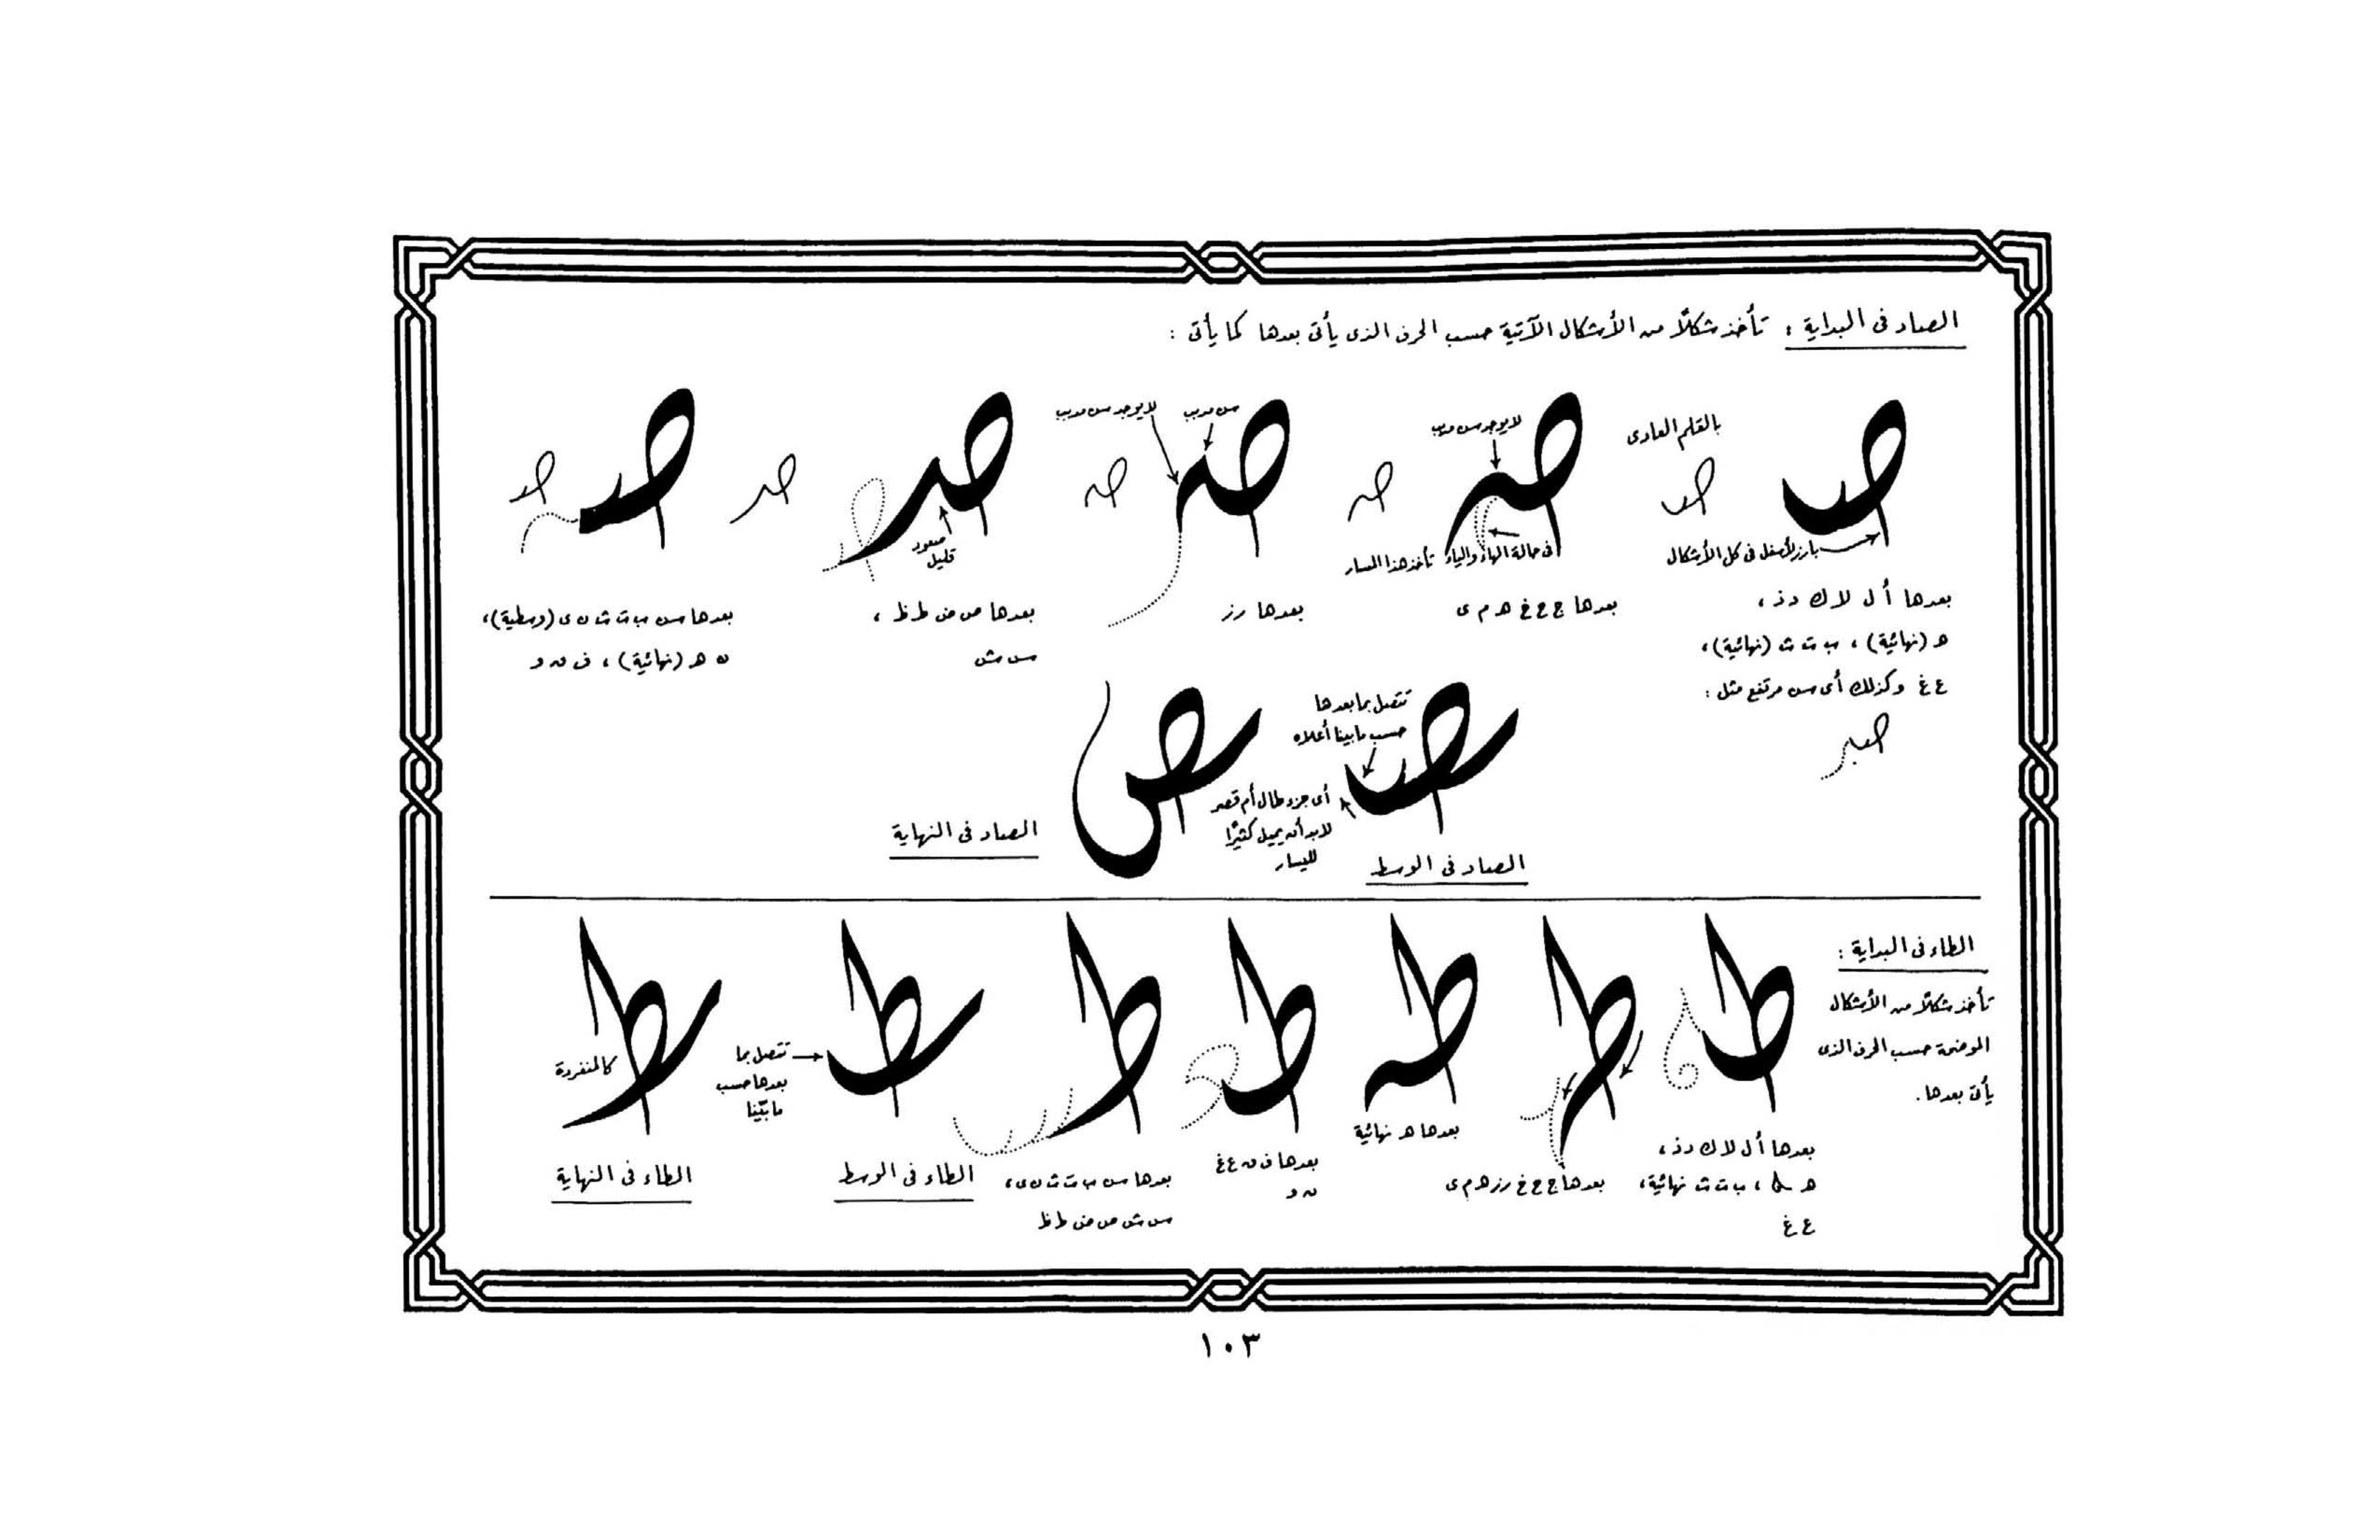 الصاد فى البداية : تأخذ شكلاً من الأشكال الآتية حسب الحرف الذى يأتى بعدها كما يأتى :
بالقلم العادى
بارز لأسفل فى كل الأشكال
بعدها أ ل لا ك د ذ ،
ه (نهائية) ، ب ت ث (نهائية) ،
ع غ وكذلك أى سن مرتفع مثل :
صبر
لا يوجد سن مدبب
فى حالة الهاء والياء تأخذ هذا المسار
بعدها ج ح خ ه م ى
سن مدبب
لا يوجد سن مدبب
بعدها ر ز
صعود
قليل
بعدها ص ض ط ظ ،
س ش
بعدها سن ب ت ث ن ى (وسطية) ،
ن ه (نهائية) ، ف ق و
تتصل بما بعدها
حسب ما بينا أعلاه
أى جزء طال أم قصر
لابد أن يميل كثيرًا
لليسار
الصاد فى الوسط
ص
الصاد فى النهاية
الطاء فى البداية :
تأخذ شكلاً من الأشكال
الموضحة حسب الحرف الذى
يأتى بعدها .
ط ط ط ط ط ط ط
بعدها أ ل لا ك د ذ ،
ب ت ث نهائية ،
ع غ
بعدها ج ح خ ر ز ه م ى
بعدها ه نهائية
بعدها ف ق ع غ
بعدها سن ب ت ث ن ى ،
س ش ص ض ط ظ
تتصل بما
بعدها حسب
ما بيّنا
الطاء فى الوسط
كالمنفردة
الطاء فى النهاية
١٠٣